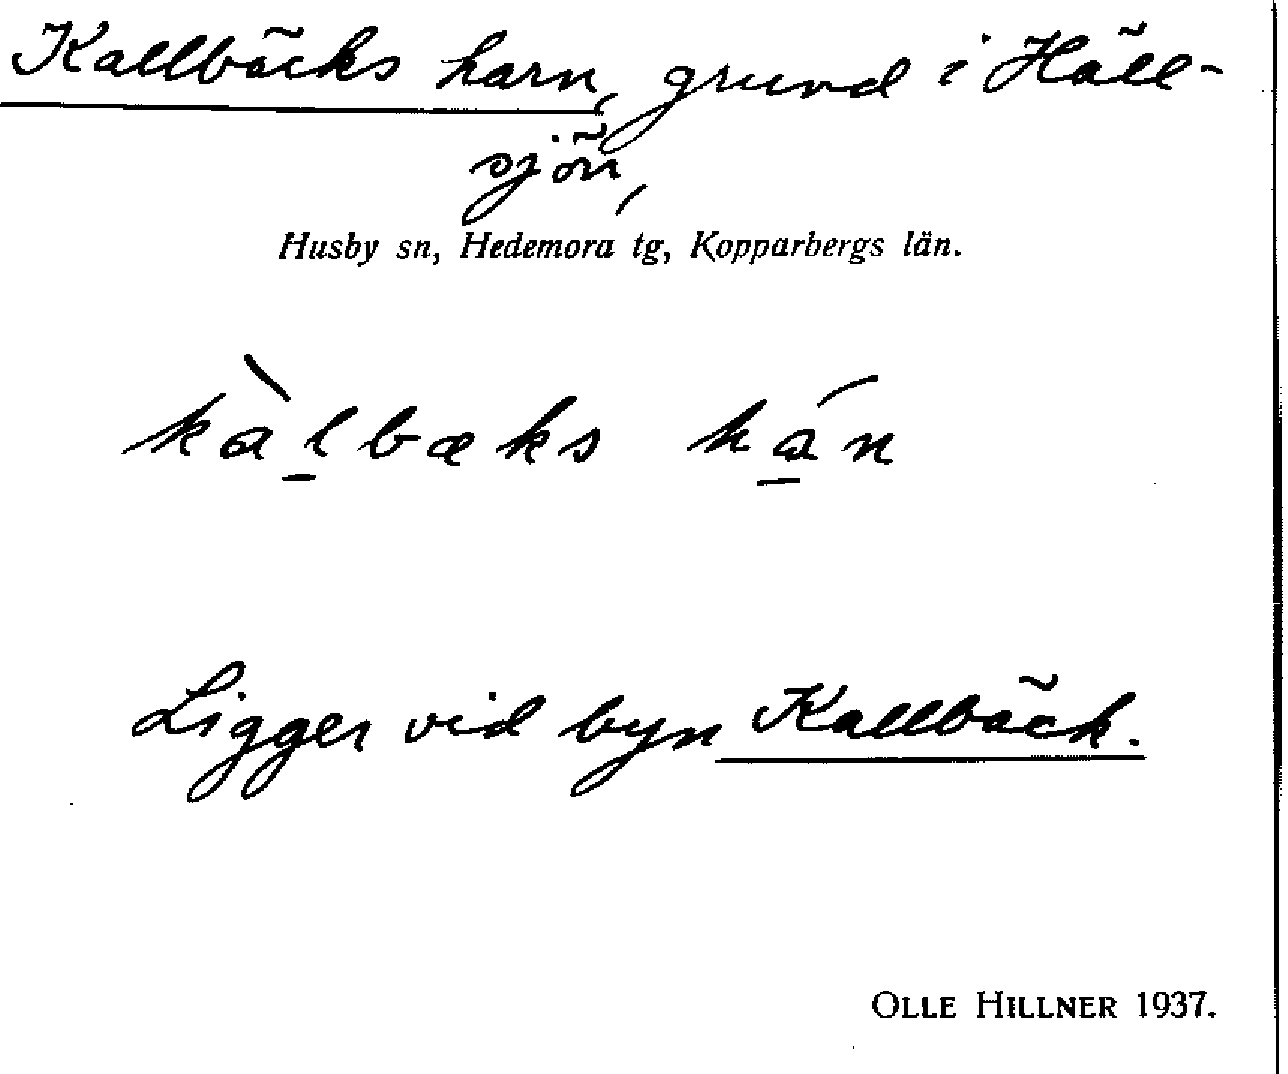 Kallbäcks harn, grund i Häll-
sjön,
Husby sn, Hedemora tg, Kopparbergs län.
kàl̲bæks há̲n
Ligger vid byn Kallbäck.
OLLE HILLNER 1937.